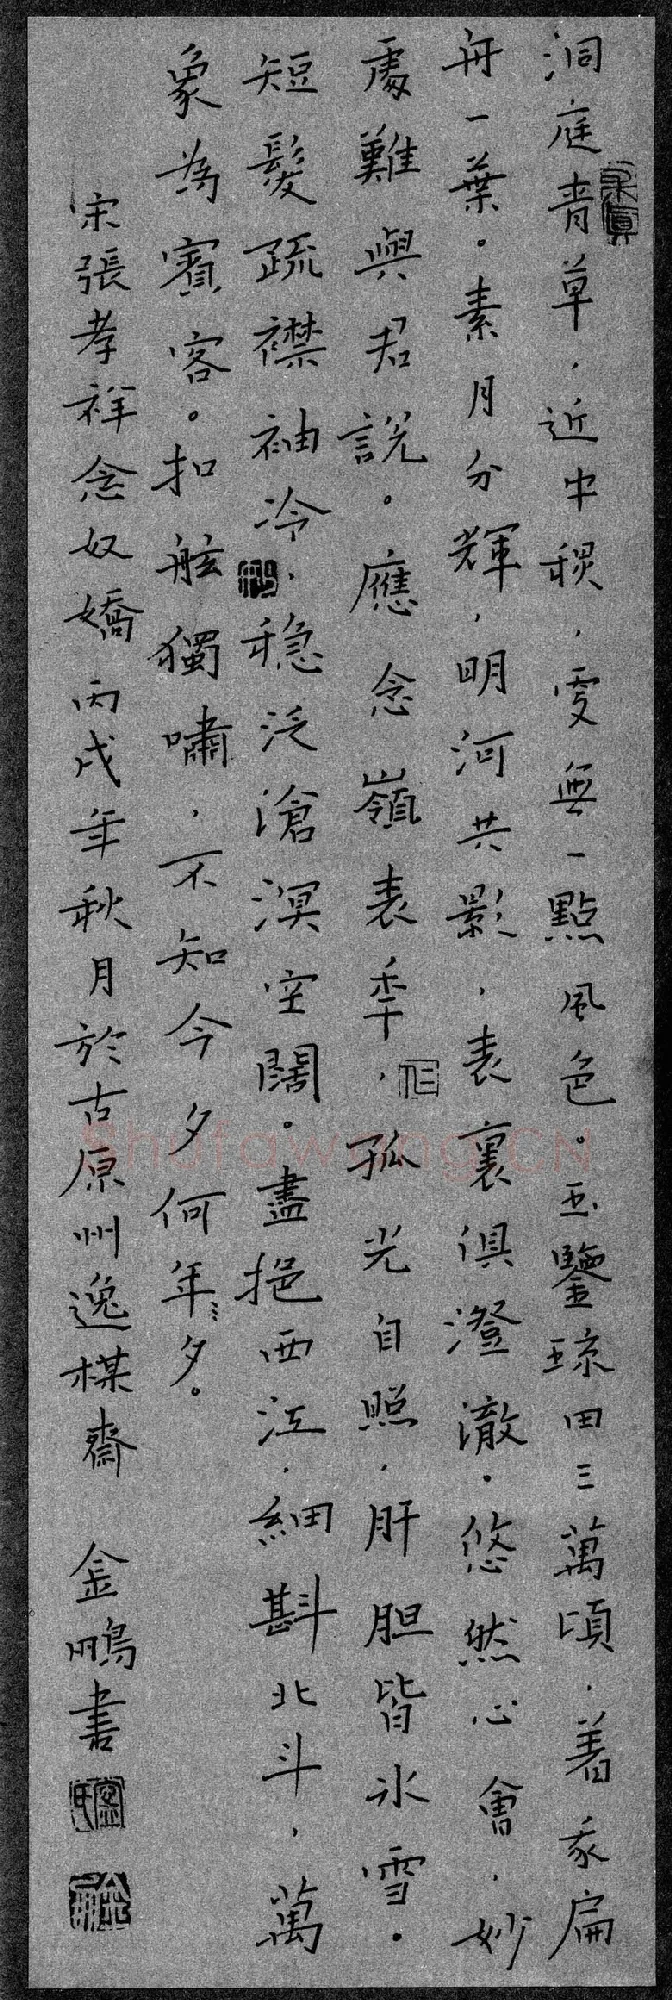 洞庭青草，近中秋，更無一點風色。玉鑒琼田三萬頃，着我扁
舟一葉。素月分輝，明河共影，表裏俱澄澈。悠然心會，妙
處難與君說。應念嶺表年，孤光自照，肝胆皆冰雪。
短髮疏襟袖冷，穏泛滄溟空闊。盡挹西江，細斟北斗，萬
象為賓客。扣舷獨嘯，不知今夕何年夕。
宋張孝祥念奴嬌丙戌年秋月於古原州逸楳齋 金鵬書
Shufawang.CN